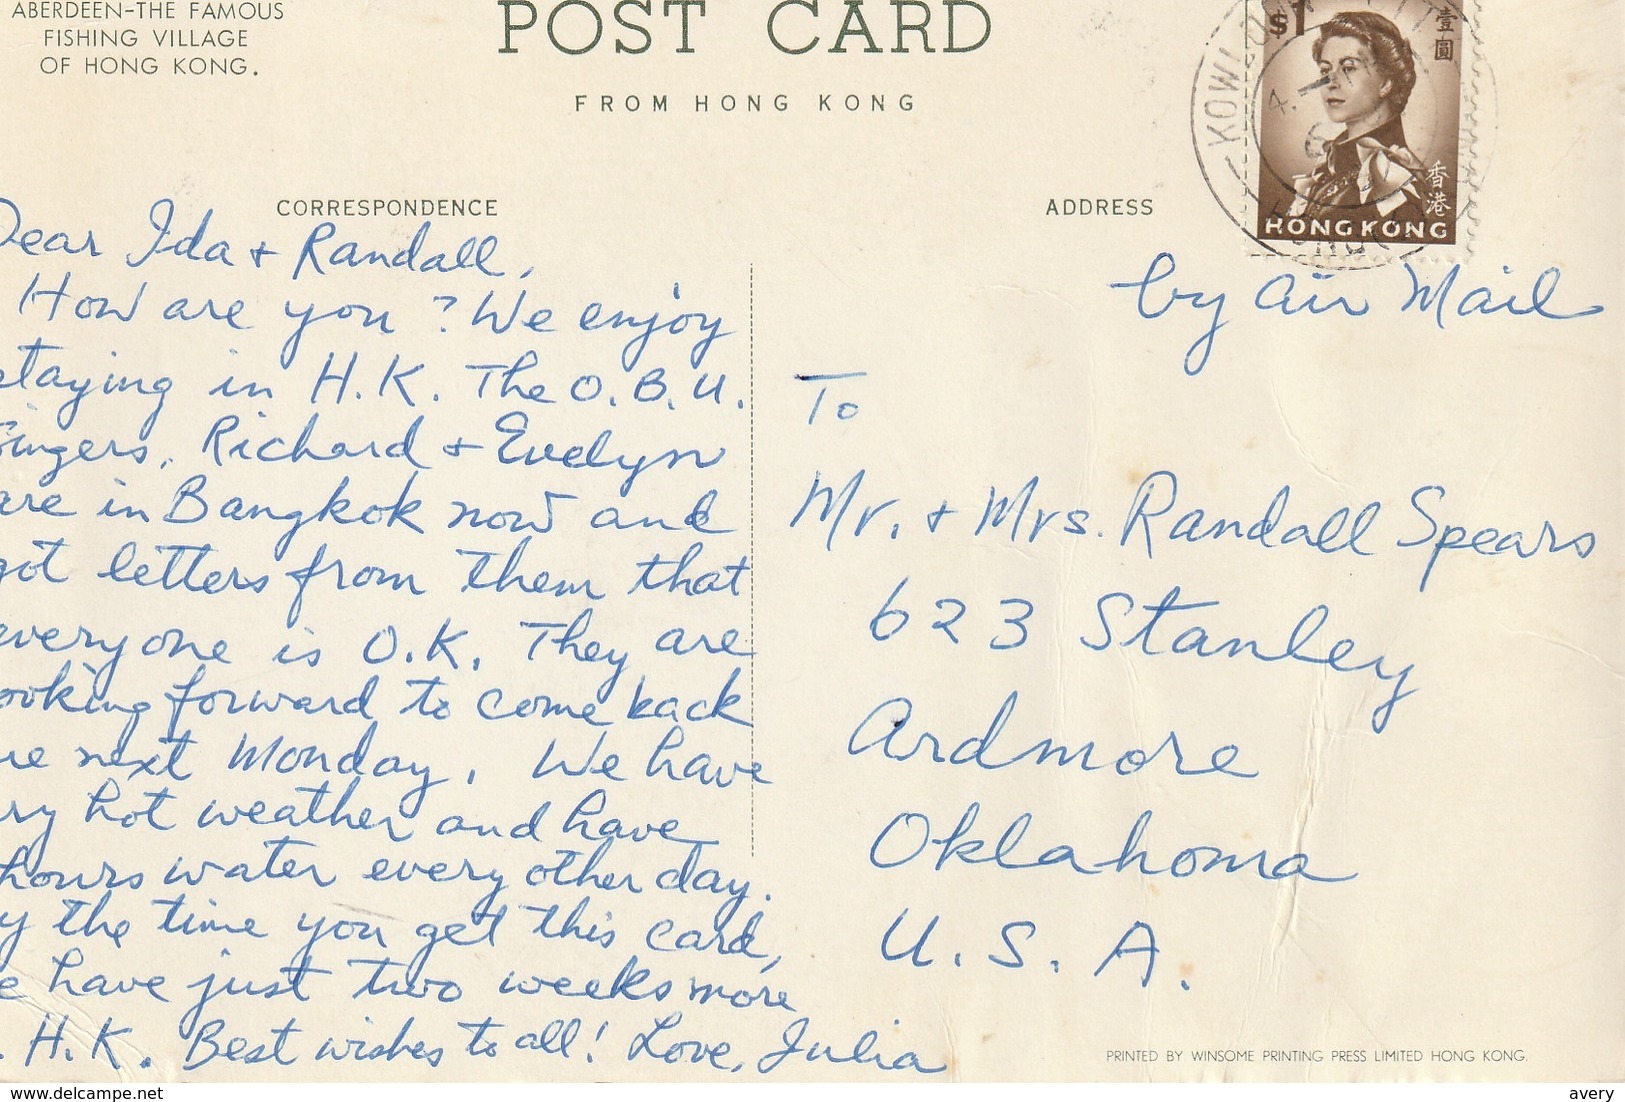 ABERDEEN-THE FAMOUS
FISHING VILLAGE
OF HONG KONG.
POST CARD
FROM HONG KONG
$1
壹圓
香港
HONG KONG
KOWLOON
CORRESPONDENCE
Dear Ida + Randall,
How are you? We enjoy
staying in H.K. The O.B.U.
Singers, Richard + Evelyn
are in Bangkok now and
got letters from them that
everyone is O.K. They are
ooking forward to come back
re next Monday. We have
ry hot weather and have
hours water every other day.
y the time you get this card,
e have just two weeks more
. H.K. Best wishes to all! Love, Julia
ADDRESS
by Air Mail
To
Mr. + Mrs. Randall Spears
623 Stanley
Ardmore
Oklahoma
U. S. A.
PRINTED BY WINSOME PRINTING PRESS LIMITED HONG KONG.
www.delcampe.net
avery